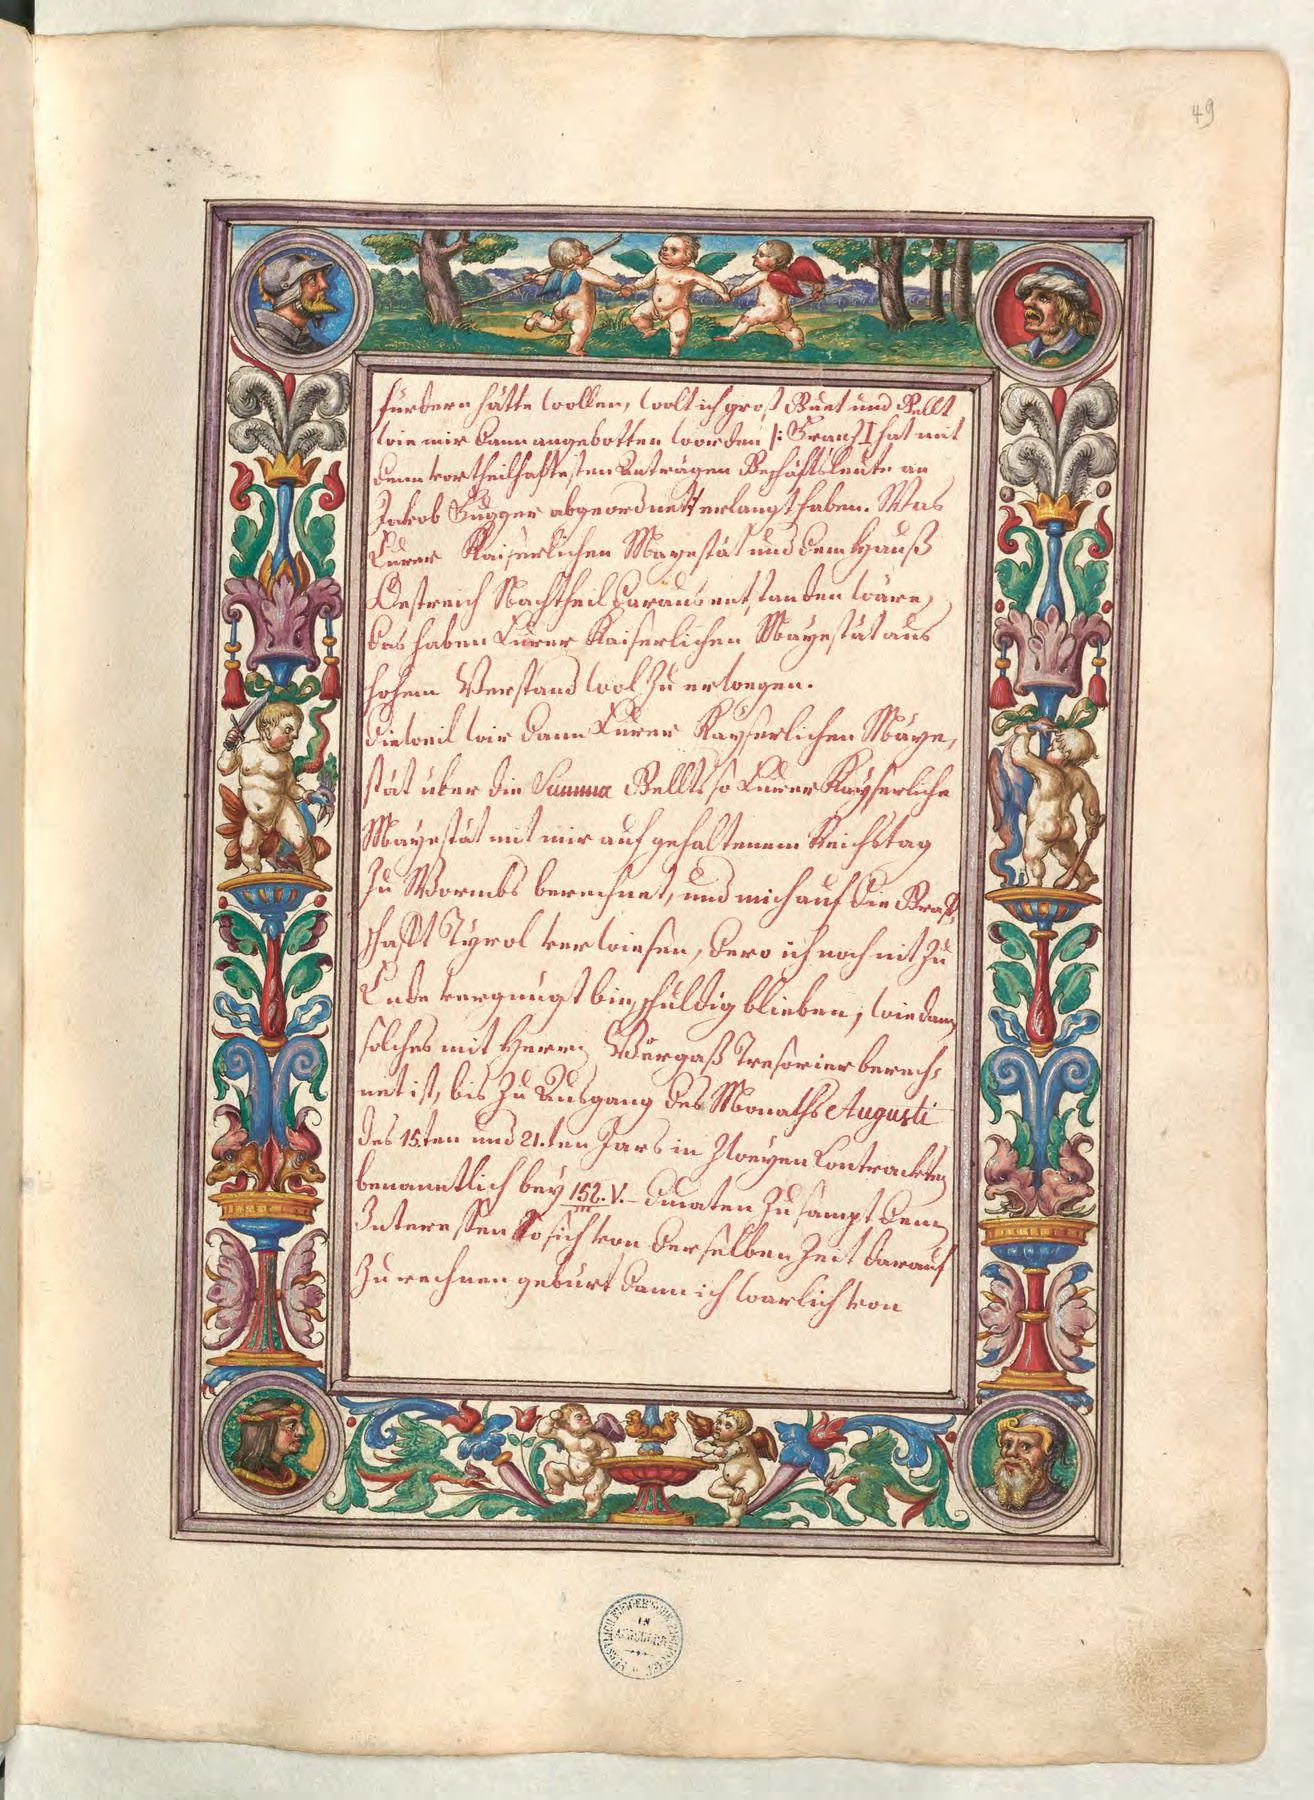 49
fürdern hätte wollen, wolt ich groß Guet und Gellt
wie mir dann angebotten worden /: Franz I hat mit
denn vortheilhaftesten Anträgen Geschäftsleute an
Jakob Fugger abgeordnet :/ erlangt haben. Was
Eurer Kaiserlichen Mayestät und dem Hauß
Oestreich Nachtheil daraus entstanden wäre,
das haben Eurer Kaiserlichen Mayestät aus
hohem Verstand wol zu erwegen.
Dieweil wir dann Eurer Kayserlichen Maye,
stät über die Summa Gellts so Eurer Kayserliche
Mayestät mit mir auf gehaltenem Reichstag
zu Wormbs berechnet, und mich auf die Graf,
schafft Tyrol verwiesen, dero ich noch nit zu
Ende vergnügt bin, schuldig blieben, wie dann
solches mit Herrn Vorgaß Tresorier berech,
net ist, bis zu Ausgang des Monaths Augusti
des 15.ten und 21.ten Jars in zweyen Contrackten
benanntlich bey 152. V. Ducaten zusampt dem
Interessen so sich von derselben Zeit darauf
zu rechnen gebürt dann ich warlich von
IN
AUGSBURG